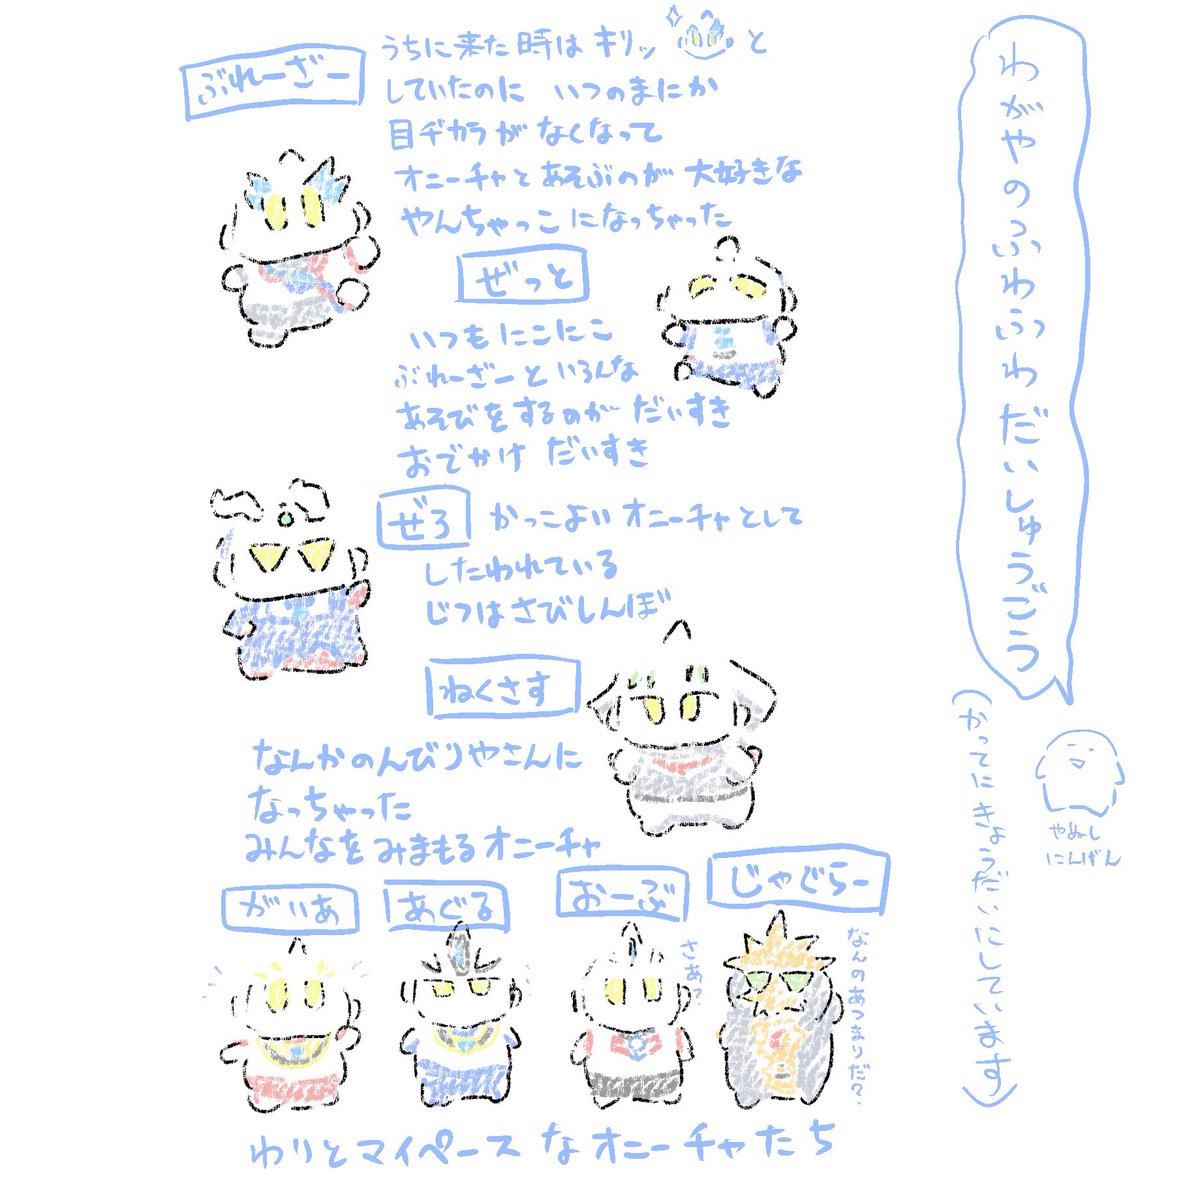 わがやのふわふわだいしゅうごう
(かってにきょうだいにしています)
やぬし
にんげん
ぶれーざー
うちに来た時は キリッ と
していたのに いつのまにか
目ヂカラが なくなって
オニーチャと あそぶのが 大好きな
やんちゃっこ になっちゃった
ぜっと
いつも にこにこ
ぶれーざーと いろんな
あそびをするのが だいすき
おでかけ だいすき
ぜろ
かっこよい オニーチャとして
したわれている
じつは さびしんぼ
ねくさす
なんかのんびりやさんに
なっちゃった
みんなを みまもる オニーチャ
がいあ
あぐる
おーぶ
じゃぐらー
さあ?
なんのあつまりだ?
わりと マイペース な オニーチャたち